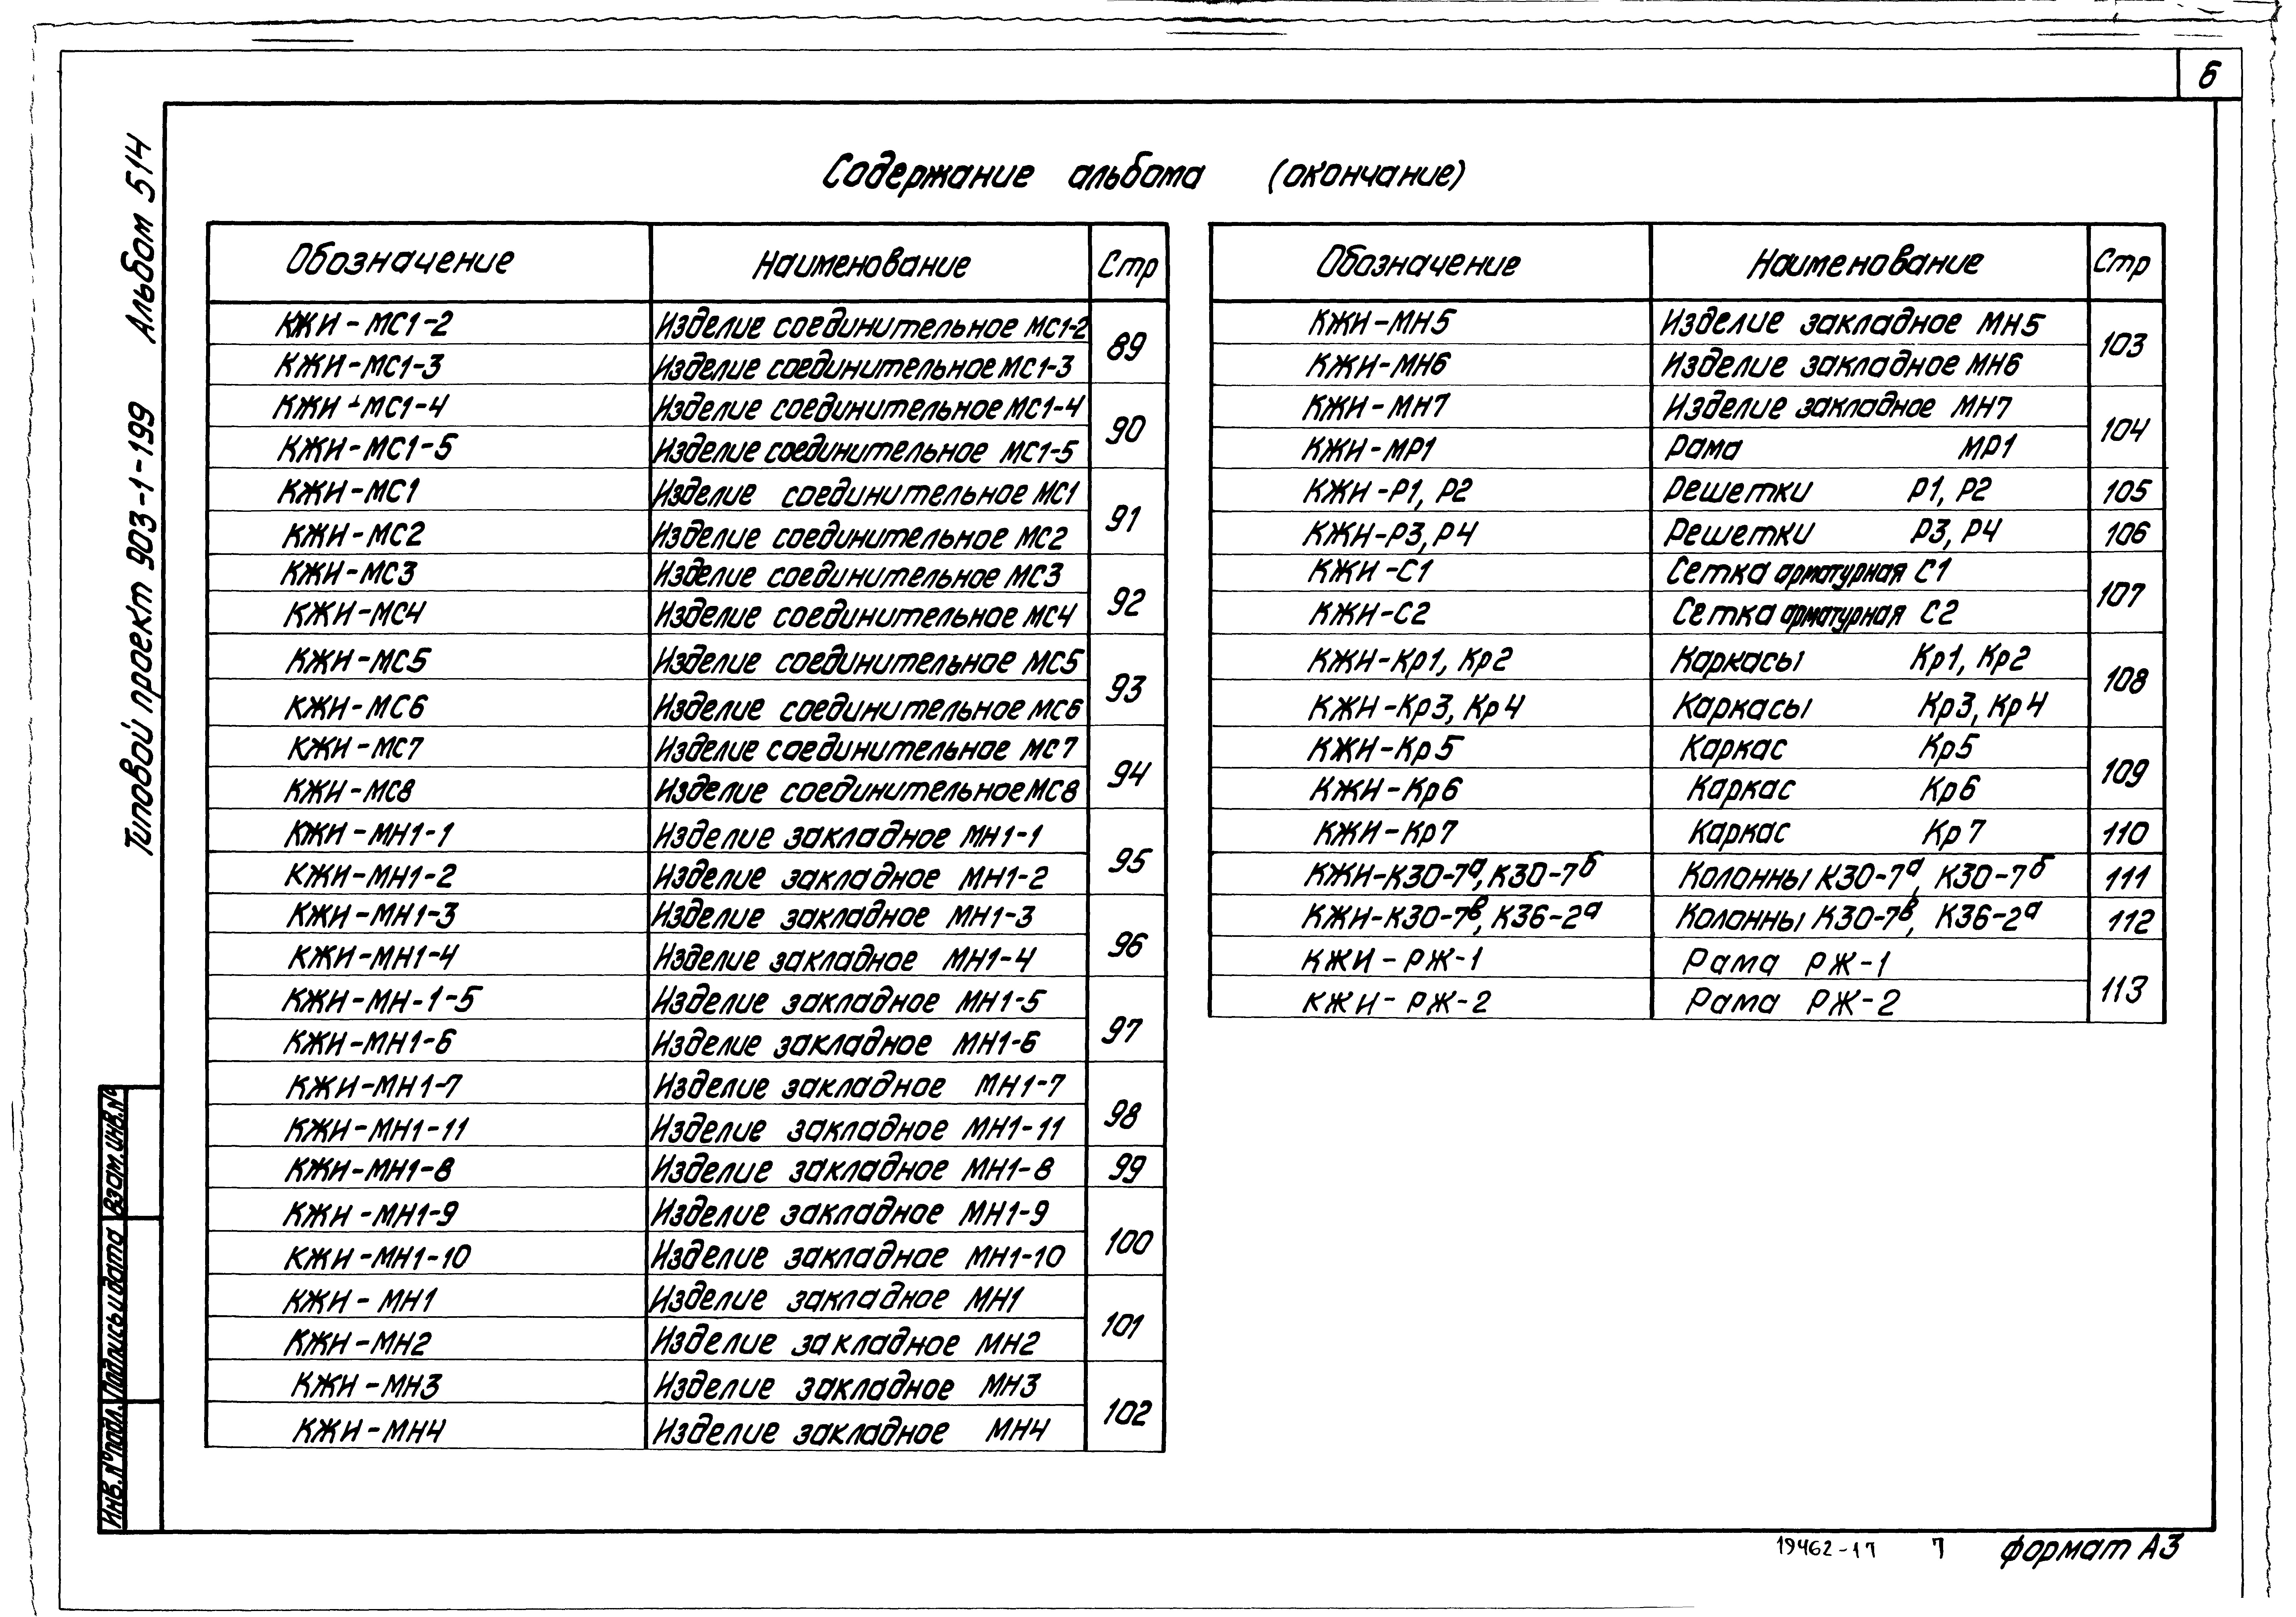 6
Содержание альбома (окончание)
Типовой проект 903-1-199 Альбом 514
Обозначение Наименование Стр
КЖИ-МС1-2 Изделие соединительное МС1-2 89
КЖИ-МС1-3 Изделие соединительное МС1-3
КЖИ-МС1-4 Изделие соединительное МС1-4 90
КЖИ-МС1-5 Изделие соединительное МС1-5
КЖИ-МС1 Изделие соединительное МС1 91
КЖИ-МС2 Изделие соединительное МС2
КЖИ-МС3 Изделие соединительное МС3 92
КЖИ-МС4 Изделие соединительное МС4
КЖИ-МС5 Изделие соединительное МС5 93
КЖИ-МС6 Изделие соединительное МС6
КЖИ-МС7 Изделие соединительное МС7 94
КЖИ-МС8 Изделие соединительное МС8
КЖИ-МН1-1 Изделие закладное МН1-1 95
КЖИ-МН1-2 Изделие закладное МН1-2
КЖИ-МН1-3 Изделие закладное МН1-3 96
КЖИ-МН1-4 Изделие закладное МН1-4
КЖИ-МН-1-5 Изделие закладное МН1-5 97
КЖИ-МН1-6 Изделие закладное МН1-6
КЖИ-МН1-7 Изделие закладное МН1-7 98
КЖИ-МН1-11 Изделие закладное МН1-11
КЖИ-МН1-8 Изделие закладное МН1-8 99
КЖИ-МН1-9 Изделие закладное МН1-9 100
КЖИ-МН1-10 Изделие закладное МН1-10
КЖИ-МН1 Изделие закладное МН1 101
КЖИ-МН2 Изделие закладное МН2
КЖИ-МН3 Изделие закладное МН3 102
КЖИ-МН4 Изделие закладное МН4
Обозначение Наименование Стр
КЖИ-МН5 Изделие закладное МН5 103
КЖИ-МН6 Изделие закладное МН6
КЖИ-МН7 Изделие закладное МН7 104
КЖИ-МР1 Рама МР1
КЖИ-Р1, Р2 Решетки Р1, Р2 105
КЖИ-Р3, Р4 Решетки Р3, Р4 106
КЖИ-С1 Сетка арматурная С1 107
КЖИ-С2 Сетка арматурная С2
КЖИ-Кр1, Кр2 Каркасы Кр1, Кр2 108
КЖИ-Кр3, Кр4 Каркасы Кр3, Кр4
КЖИ-Кр5 Каркас Кр5 109
КЖИ-Кр6 Каркас Кр6
КЖИ-Кр7 Каркас Кр7 110
КЖИ-К30-7а, К30-7б Колонны К30-7а, К30-7б 111
КЖИ-К30-7в, К36-2а Колонны К30-7в, К36-2а 112
КЖИ-РЖ-1 Рама РЖ-1 113
КЖИ-РЖ-2 Рама РЖ-2
Инв.№подл. Подпись и дата Взам.инв.№
19462-17 7 формат А3